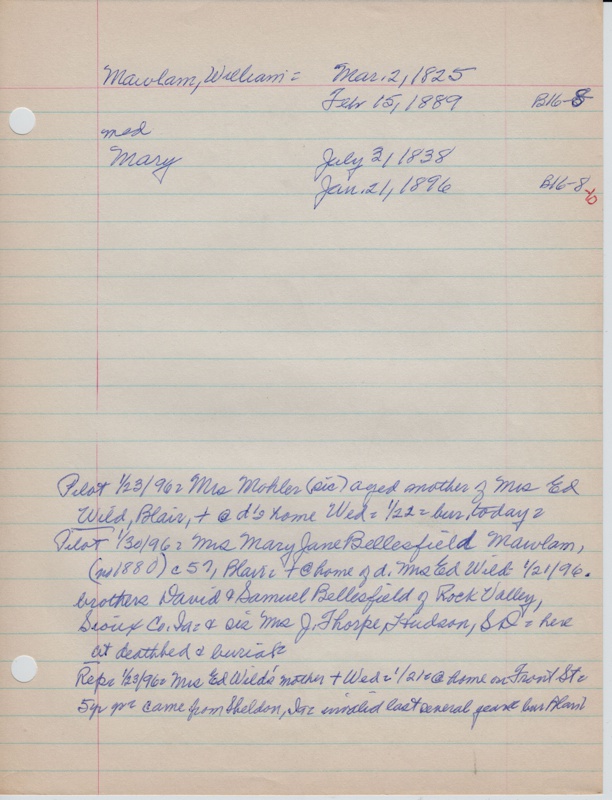 Mawlam, William = Mar. 2, 1825
Feb 15, 1889 B16-8
med
Mary July 3, 1838
Jan. 21, 1896 B16-8
Pilot 1/23/96 = Mrs Mohler (sic) aged mother of Mrs Ed
Wild, Blair, + @ d's home Wed = 1/22 = bur. today =
Pilot 1/30/96 = Mrs Mary Jane Bellesfield Mawlam,
(ns 1880) c 57, Blair = + @ home of d. Mrs Ed Wild 1/21/96.
brothers David & Samuel Bellesfield of Rock Valley,
Sioux Co. Ia = & sis Mrs J. Thorpe, Hudson, S.D. = here
at deathbed & burial =
Rep = 1/23/96 = Mrs Ed Wild's mother + Wed = 1/21 = @ home on Front St =
5 yr came from Sheldon, Ia = invalid last several years = bur Blair